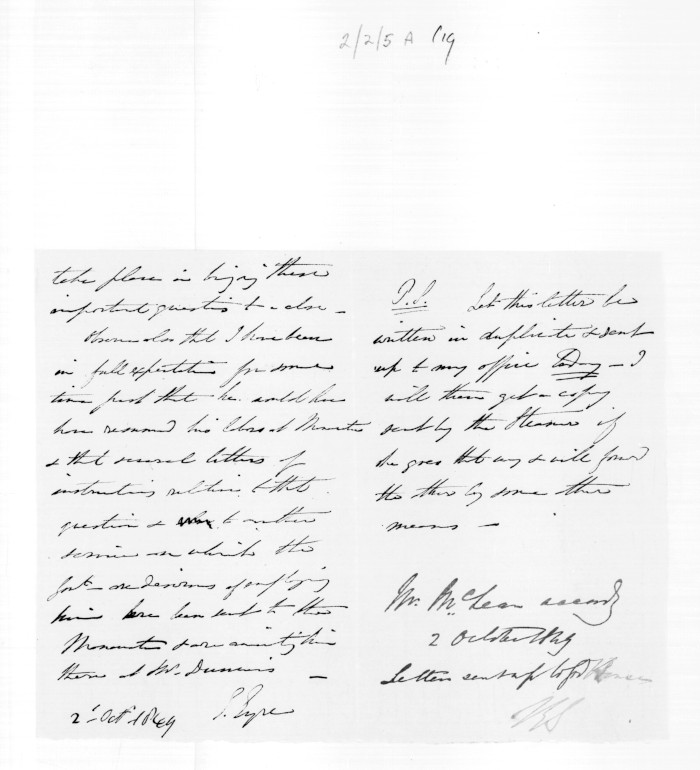 2/2/5 A 19
take place in bringing these
important questions to a close -
Observe also that I have been
in full expectation for some
time past that he would have
have resumed his labors at Manawatu
& that several letters of
instructions relative to that
question & to another
service on which the
Govt are desirous of employing
him have been sent to the
Manawatu & are awaiting him
there at Mr. Duncan's -
2d Octr 1849 E. Eyre
P.S. Let this letter be
written in duplicate & sent
up to my office today - I
will then get a copy
sent by the Steamer if
she goes that way & will forwd
the other by some other
means -
Mr. McLean accordg
2 October 1849
Letters sent up to Gt House